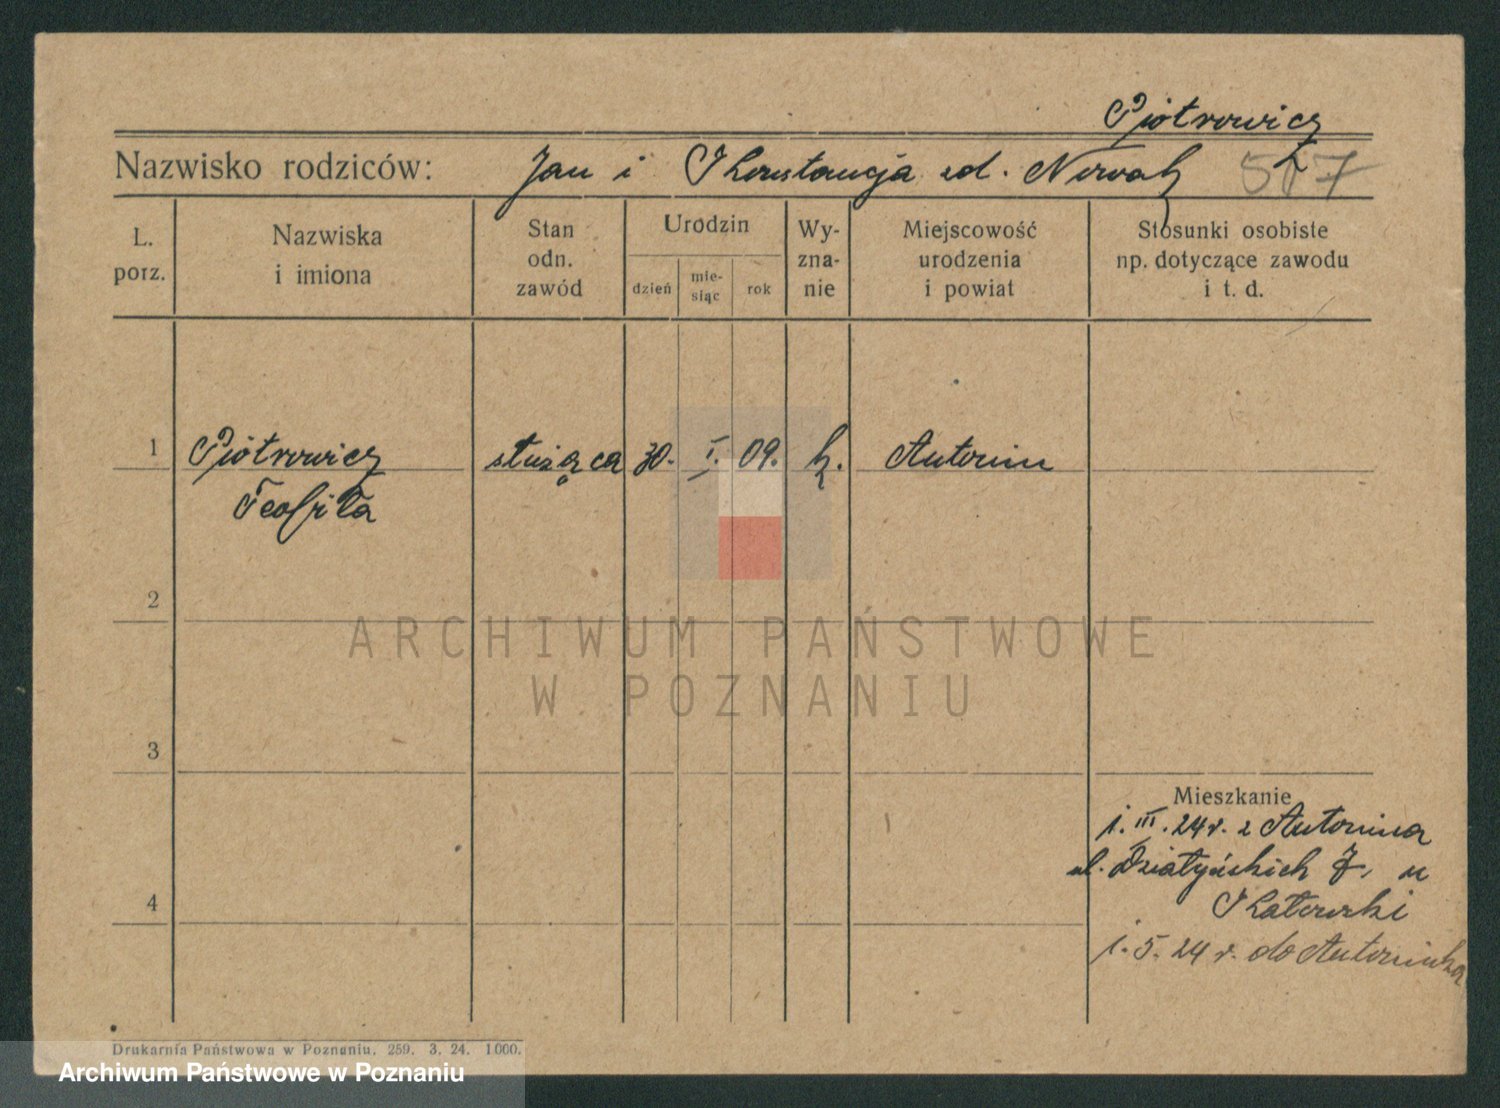 Piotrowicz
Nazwisko rodziców: Jan i Konstancja zd. Nowak 507
L. porz.
Nazwiska i imiona
Stan odn. zawód
Urodzin
dzień
mie-
siąc
rok
Wy-
zna-
nie
Miejscowość urodzenia i powiat
Stosunki osobiste
np. dotyczące zawodu
i t. d.
1 Piotrowicz służąca 30. I. 09. k. Antonin
Teofila
2
ARCHIWUM PAŃSTWOWE
W POZNANIU
3
Mieszkanie
1. III. 24 r. z Antonina
ul. Działyńskich 7, u
4
1. 5. 24 r. do Antoninka
Drukarnia Państwowa w Poznaniu. 259. 3. 24. 1000.
Archiwum Państwowe w Poznaniu